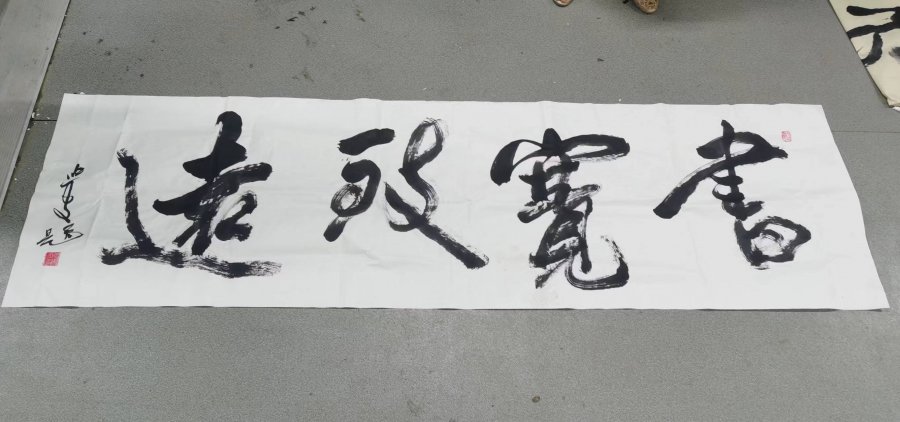 書寬致遠